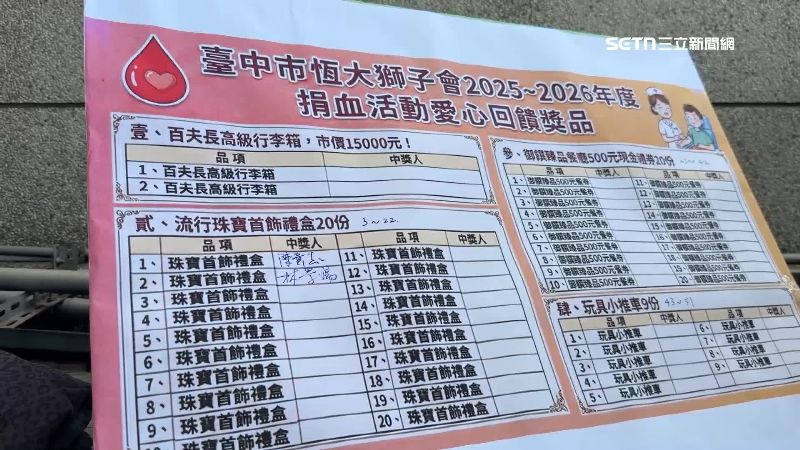 SETN三立新聞網
臺中市恆大獅子會2025~2026年度
捐血活動愛心回饋獎品
壹、百夫長高級行李箱，市價15000元！
品項 中獎人
1、百夫長高級行李箱
2、百夫長高級行李箱
貳、流行珠寶首飾禮盒20份 3~22
品項 中獎人 品項 中獎人
1、珠寶首飾禮盒 11、珠寶首飾禮盒
2、珠寶首飾禮盒 12、珠寶首飾禮盒
3、珠寶首飾禮盒 13、珠寶首飾禮盒
4、珠寶首飾禮盒 14、珠寶首飾禮盒
5、珠寶首飾禮盒 15、珠寶首飾禮盒
6、珠寶首飾禮盒 16、珠寶首飾禮盒
7、珠寶首飾禮盒 17、珠寶首飾禮盒
8、珠寶首飾禮盒 18、珠寶首飾禮盒
9、珠寶首飾禮盒 19、珠寶首飾禮盒
珠寶首飾禮盒 20、珠寶首飾禮盒
參、御饌臻品餐廳500元現金禮券20份
品項 中獎人 品項 中獎人
1、御饌臻品500元餐券 11、御饌臻品500元餐券
2、御饌臻品500元餐券 12、御饌臻品500元餐券
3、御饌臻品500元餐券 13、御饌臻品500元餐券
4、御饌臻品500元餐券 14、御饌臻品500元餐券
5、御饌臻品500元餐券 15、御饌臻品500元餐券
6、御饌臻品500元餐券 16、御饌臻品500元餐券
7、御饌臻品500元餐券 17、御饌臻品500元餐券
8、御饌臻品500元餐券 18、御饌臻品500元餐券
9、御饌臻品500元餐券 19、御饌臻品500元餐券
10、御饌臻品500元餐券 20、御饌臻品500元餐券
肆、玩具小推車9份 43~51
品項 中獎人 品項 中獎人
1、玩具小推車 6、玩具小推車
2、玩具小推車 7、玩具小推車
3、玩具小推車 8、玩具小推車
4、玩具小推車 9、玩具小推車
5、玩具小推車